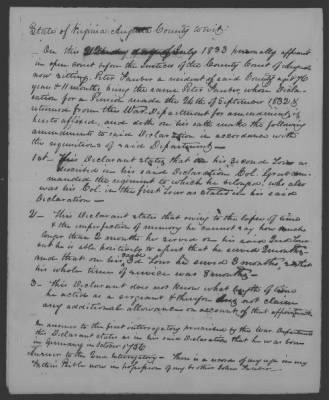 State of Virginia Augusta County to wit:
On this day of July 1833 personally appeared
in open court before the Justices of the County Court of Augusta
now sitting, Peter a resident of said County aged 76
years & 11 months, being the same Peter whose Decla-
ration for a Pension made the 26th of September 1832 &
returned from the War Department for amendment, is
hereto affixed, and doth on his oath make the following
amendments to said Declaration in accordance with
the requisitions of said Department—
1st This Declarant states that in his 3rd Tour as
in his said Declaration Col.
manded the regiment to which he belonged, who also
was his Col. in the first Tour as stated in his said
Declaration —
2— This Declarant states that owing to the lapse of time
& the imperfection of memory he cannot say how much
longer than 2 months he served on his
but he is able positively to assert that he served 2 months
and that on his 3d Tour he served 3 months, so that
his whole time of service was 8 months —
3 — This Declarant does not know what length of time
he acted as a sergeant & therefore does not claim
any additional allowance on account of that appointment
In answer to the first interrogatory prescribed by the War Department
this Declarant states as in his said Declaration that he was born
in Germany in October 1756
Answer to the 2nd Interrogatory — There is a record of my age in my
Father's Bible now in possession of my brother